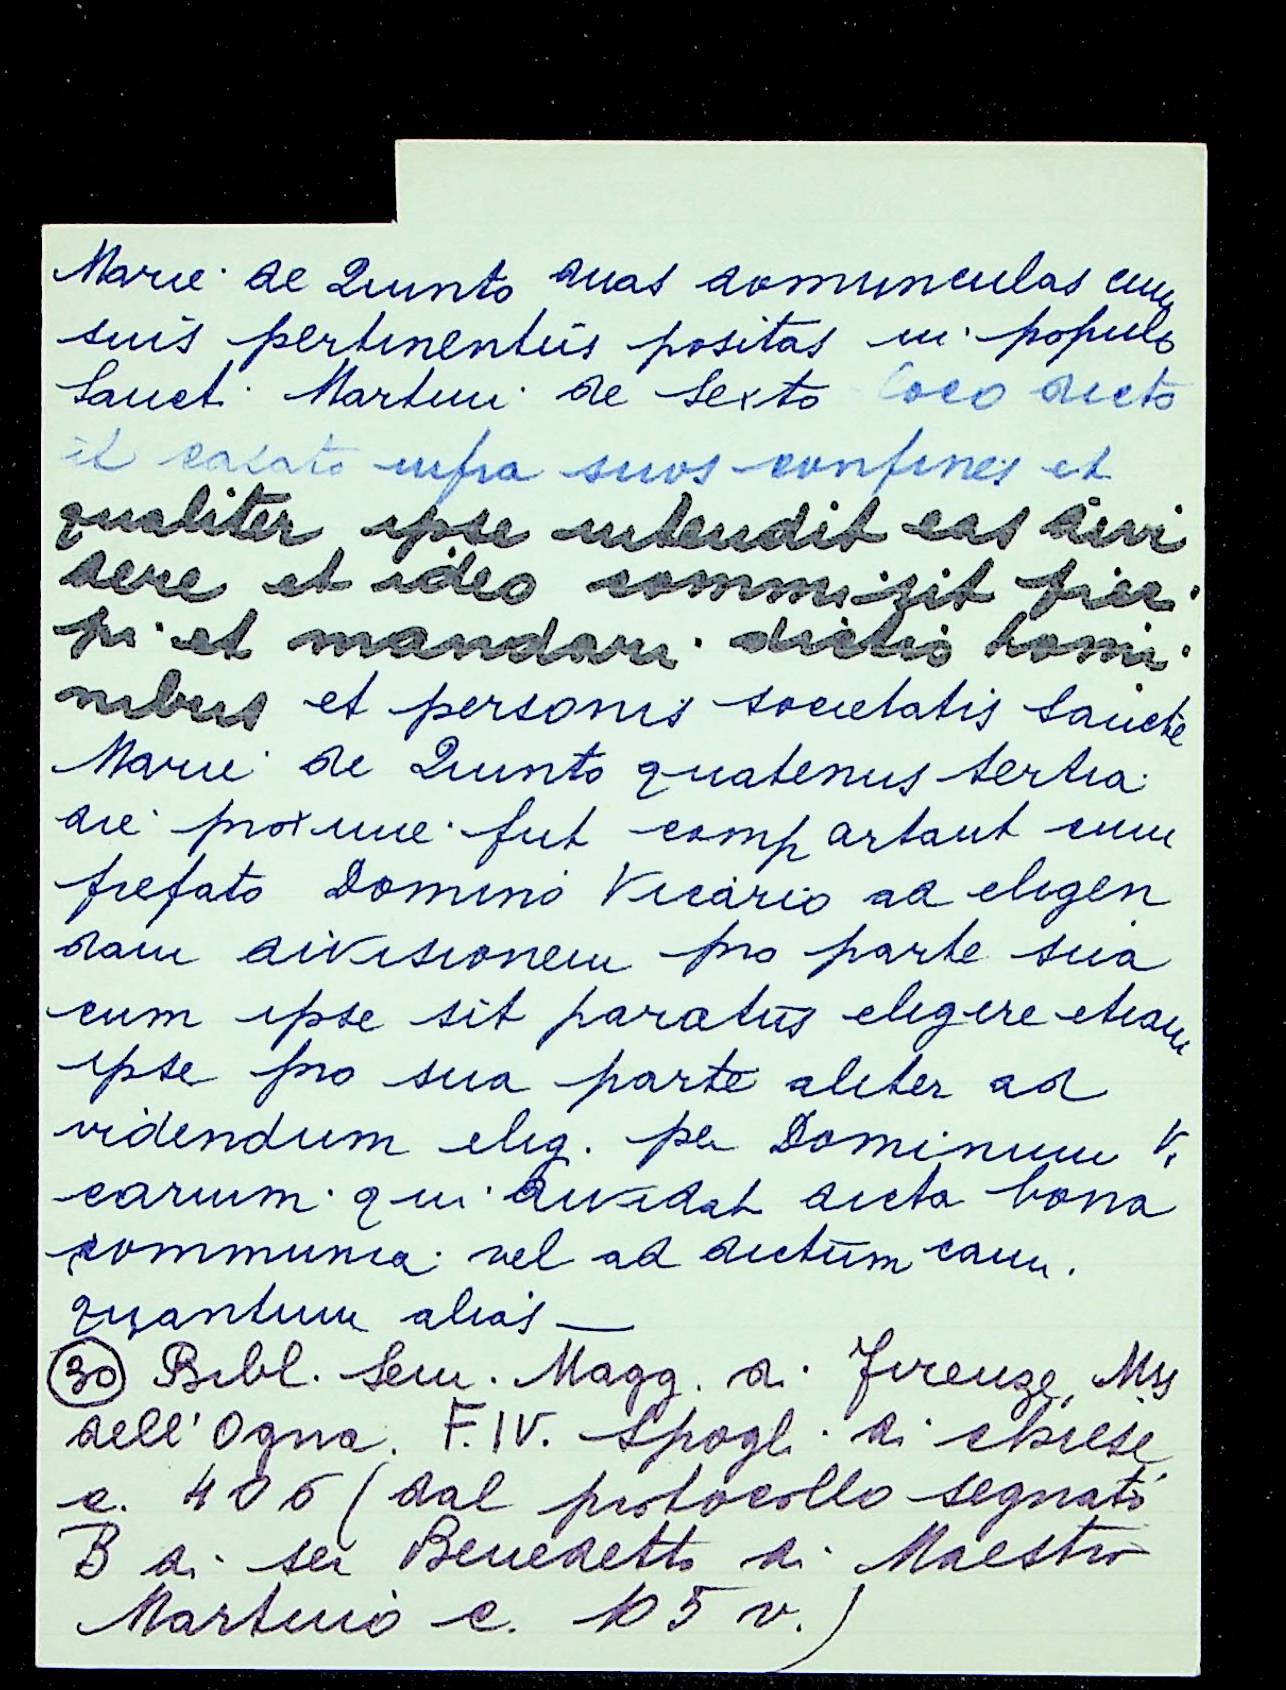 Marie de Quinto duas domunculas cum
suis pertinentiis positas in populo
Sancti Martini de Sexto loco dicto
il casato infra suos confines et
qualiter ipse intendit eas divi
dere et ideo commisit fieri
pi et mandari dictis homi
nibus et personis societatis Sancte
Marie de Quinto quatenus tertia
die proxime fut compartant cum
prefato Domino Vicario ad eligen
dam divisionem pro parte sua
cum ipse sit paratus eligere etiam
ipse pro sua parte aliter ad
videndum elig. per Dominum Vi
carium qui dividat dicta bona
communia vel ad dictum cam.
quantum alias —
(30) Bibl. Sem. Magg. di Firenze, Mss
dell'Ogna. F. IV. Spogli di chiese
c. 406 (dal protocollo segnato
B di ser Benedetto di Maestro
Martino c. 105 v.)